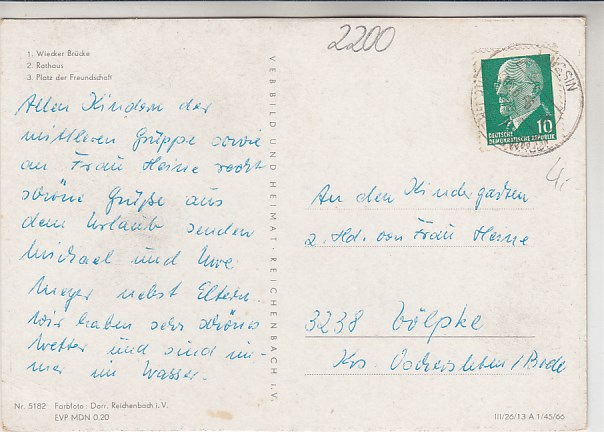 2200
1. Wiecker Brücke
2. Rathaus
3. Platz der Freundschaft
Allen Kindern der
mittleren Gruppe sowie
an Frau Heine recht
schöne Grüße aus
dem Urlaub senden
Michael und Uwe
Meyer nebst Eltern
Wir haben sehr schönes
Wetter und sind im-
mer im Wasser.
VEB BILD UND HEIMAT · REICHENBACH i.V.
10
DEUTSCHE
DEMOKRATISCHE REPUBLIK
An den Kindergarten
z. Hd. von Frau Heine
3238 Völpke
Krs. Oschersleben/Bode
Nr. 5182 Farbfoto: Darr, Reichenbach i. V.
EVP MDN 0,20
III/26/13 A 1/45/66